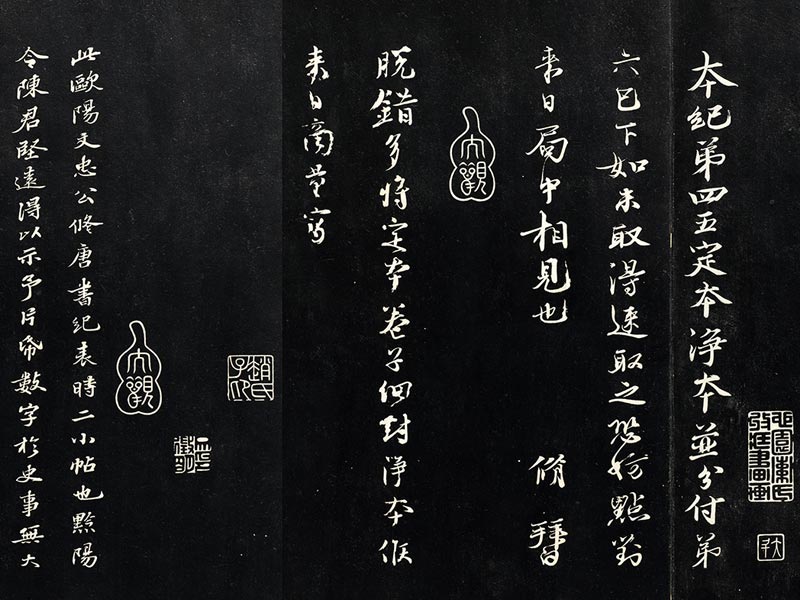 本紀第四五定本淨本並分付弟
六已下如未取得速取之恐妨點對
来日局中相見也
脩 拜白
大觀
脱錯多將定本卷子細對淨本候
来日商量寫
趙氏子印
大觀
此歐陽文忠公脩唐書紀表時二小帖也黟陽
令陳君堅遠得以示予片紙數字於史事無大